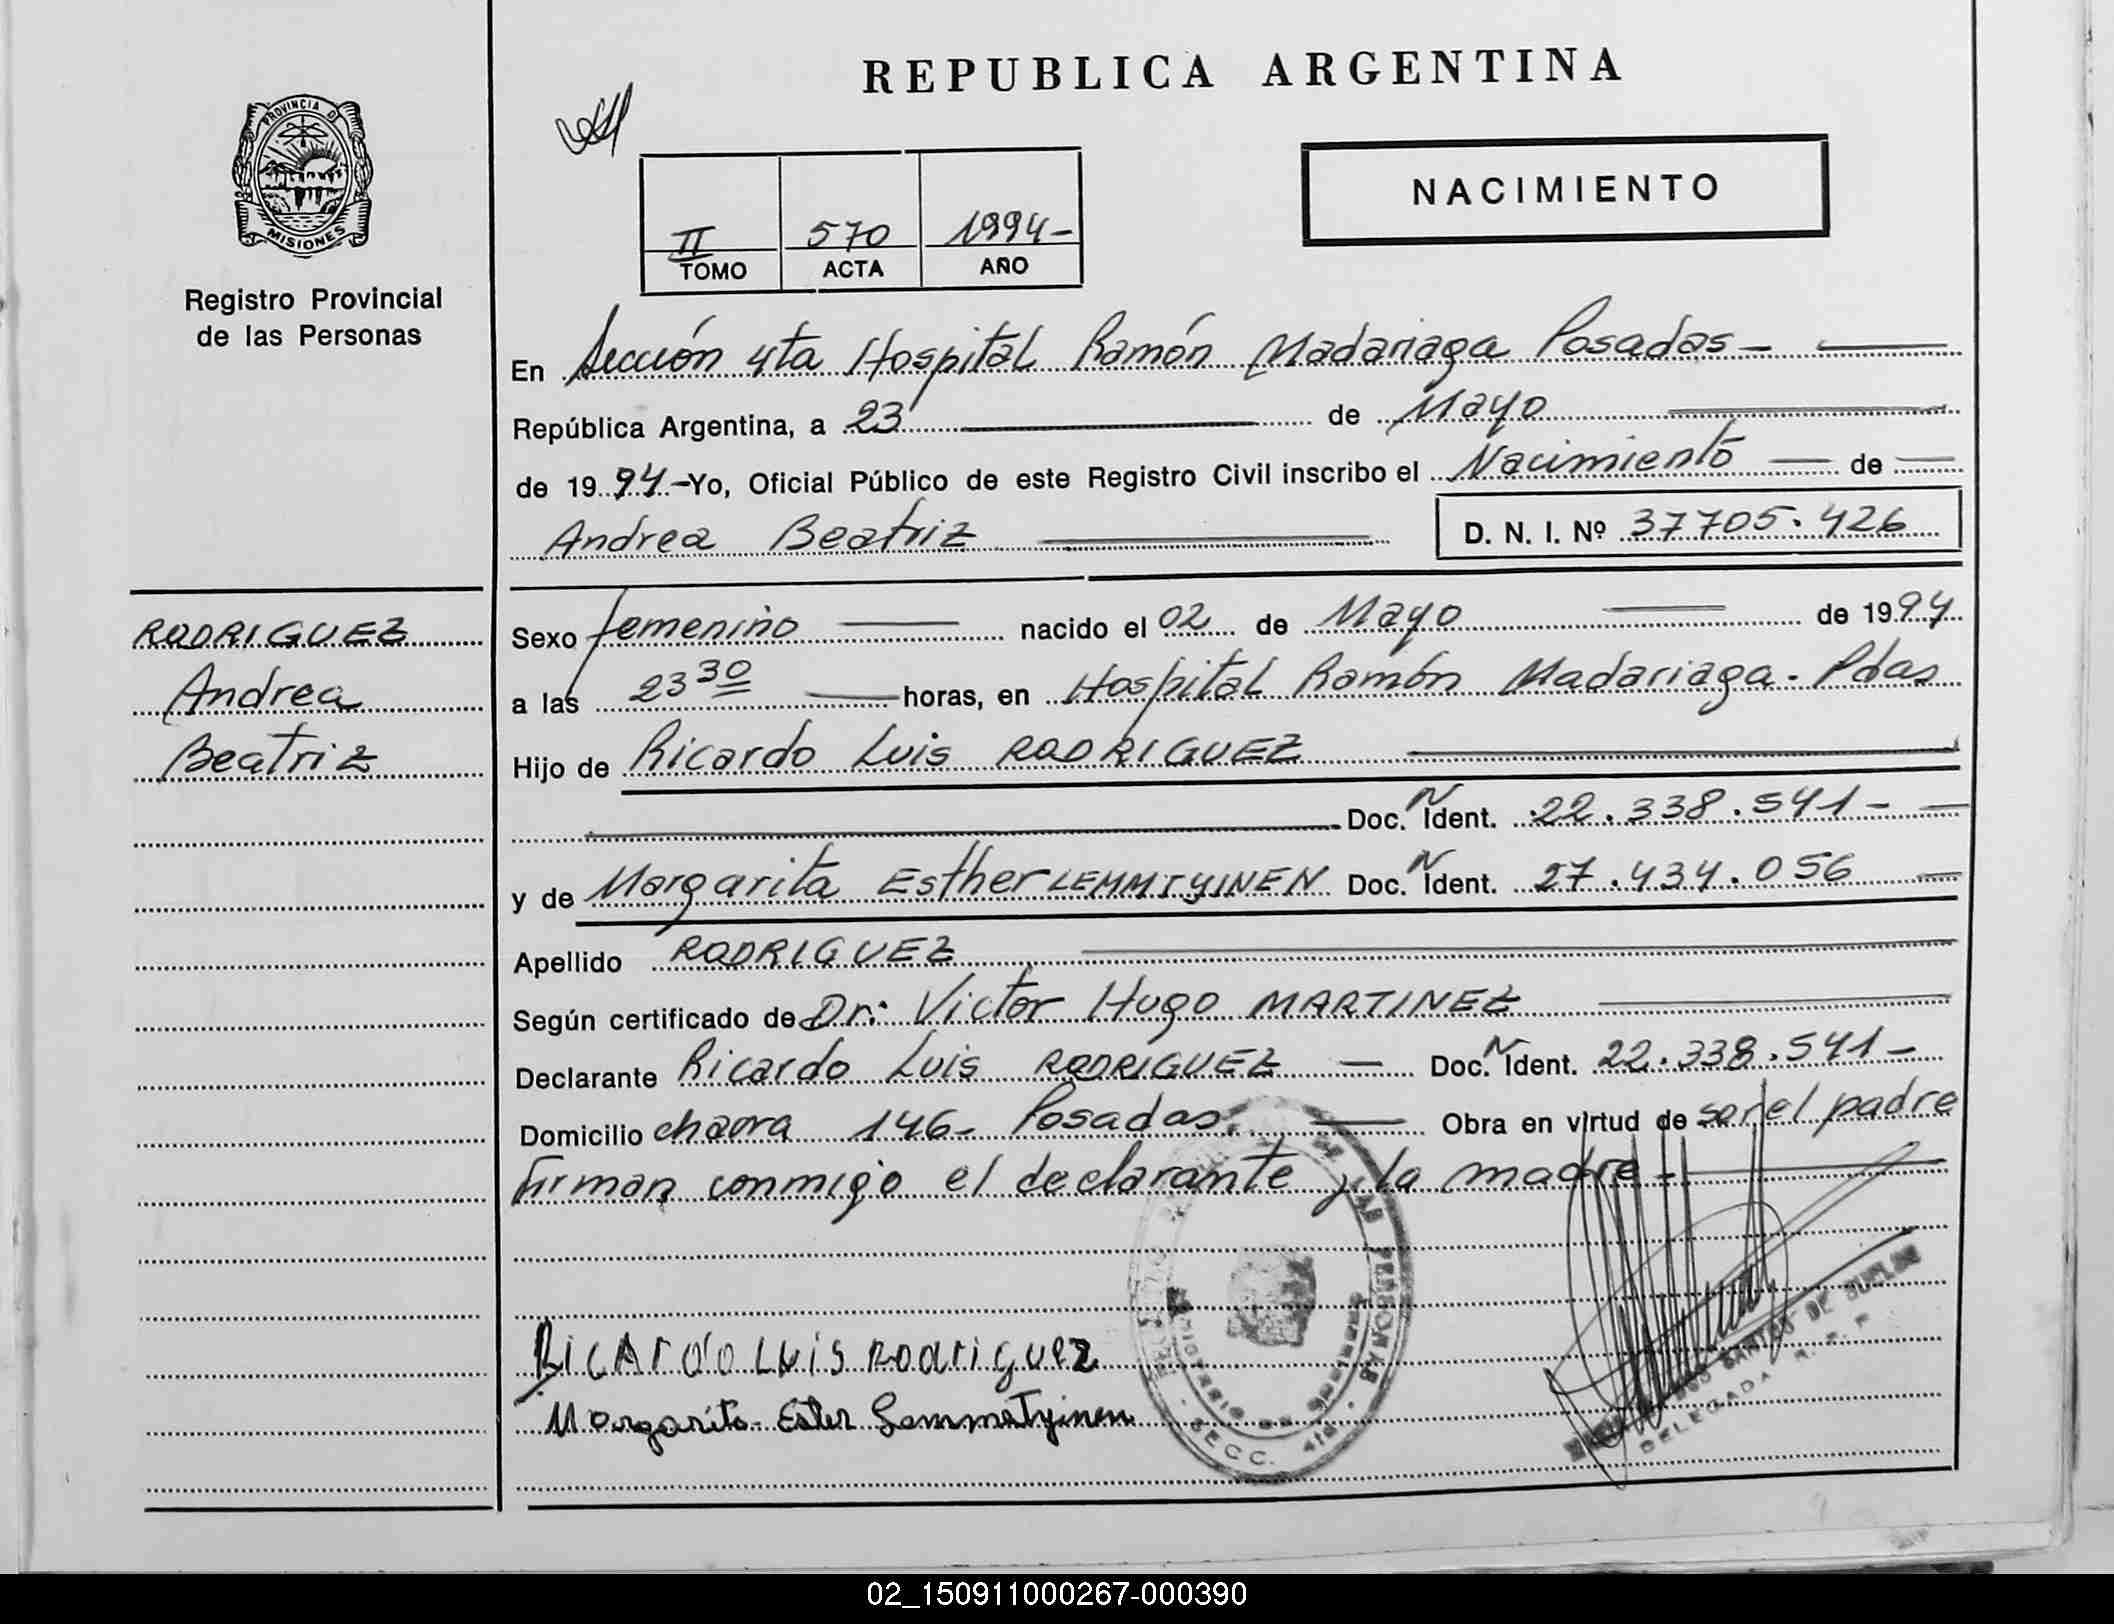 REPUBLICA ARGENTINA
PROVINCIA D
MISIONES
Registro Provincial
de las Personas
NACIMIENTO
II 570 1994-
TOMO ACTA AÑO
En Sección 4ta Hospital Ramón Madariaga Posadas-
República Argentina, a 23 de Mayo
de 1994.-Yo, Oficial Público de este Registro Civil inscribo el Nacimiento de
Andrea Beatriz D. N. I. Nº 37705.426
RODRIGUEZ
Andrea
Beatriz
Sexo femenino nacido el 02 de Mayo de 1994
a las 23 30 horas, en Hospital Ramón Madariaga. Pdas
Hijo de Ricardo Luis RODRIGUEZ
Doc. N Ident. 22.338.541-
y de Margarita Esther LEMMTYINEN Doc. N Ident. 27.434.056
Apellido RODRIGUEZ
Según certificado de Dr: Victor Hugo MARTINEZ
Declarante Ricardo Luis RODRIGUEZ - Doc. N Ident. 22.338.541-
Domicilio chacra 146- Posadas. Obra en virtud de ser el padre
firman conmigo el declarante y la madre-
RicArdo Luis Rodriguez
Margarita Ester Lemmetyinen
PERSONAS
SECC. 4ta
DELEGADA R. P. P.
02_150911000267-000390